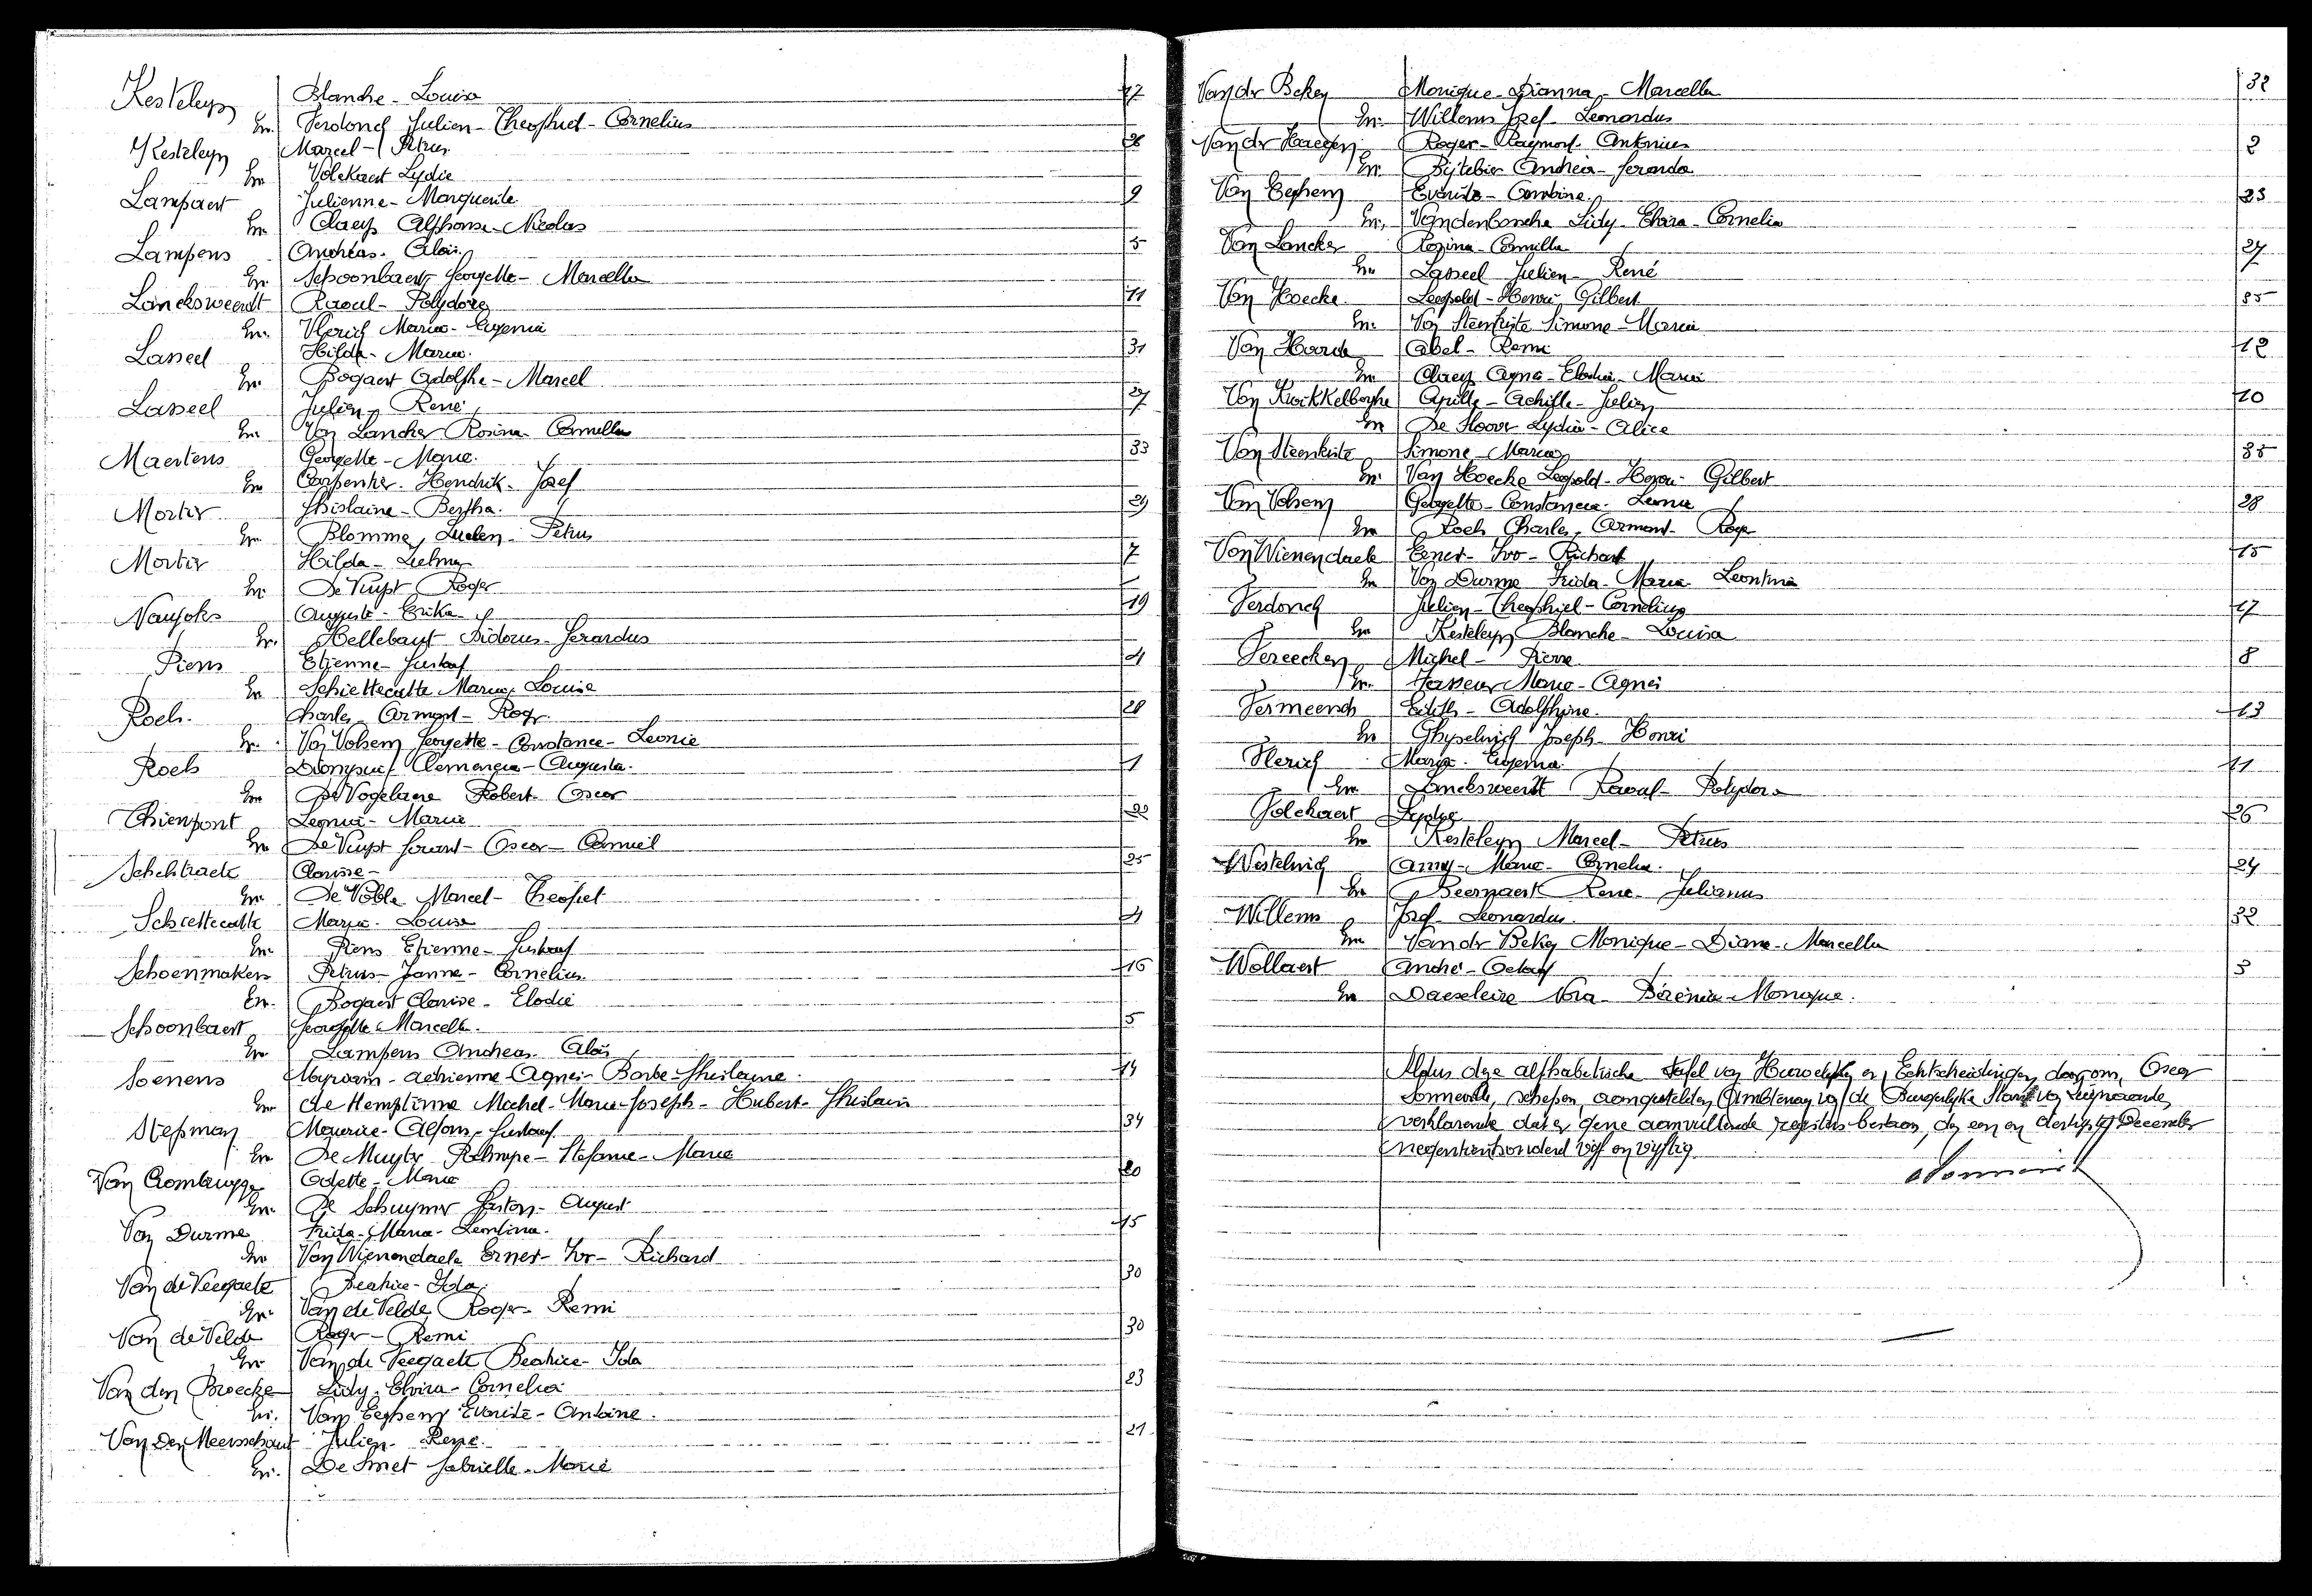 Kesteleyn Blanche - Louisa 17
En. Verdonck Julien - Theophiel - Cornelius
Kesteleyn Marcel - Petrus 26
En Volckaert Lydie
Lampaert Julienne - Marguerite 9
En Claeys Alphonse - Nicolas
Lampens Andréas - Aloïs 5
En Schoonbaert Georgette - Marcella
Lancksweerdt Raoul - Polydore 11
En. Vlerick Maria - Eugenia
Lasseel Hilda - Maria 31
En. Bogaert Adolphe - Marcel
Lasseel Julien - René 27
En. Van Lancker Rosina - Camilla
Maertens Georgette - Marie 33
En Carpentier Hendrik - Jozef
Mortier Ghislaine - Bertha 29
En Blomme, Lucien - Petrus
Mortier Hilda - Zulma 7
En. De Vuyst Roger
Naujoks Auguste - Erika 19
En. Hellebaut Isidorus - Gerardus
Piens Etienne - Gustaaf 4
En Schiettecatte Maria Louise
Roels Charles Armand - Roger 28
En. Van Volsem Georgette - Constance - Leonie
Roels Clemencia - Augusta 1
En De Vogelaere Robert Oscar
Thienpont Leonia - Marie 22
En De Vuyst Gerard - Oscar - Camiel
Schelstraete Clarisse - 25
En. De Noble Marcel - Theofiel
Schiettecatte Maria - Louise 4
En. Piens Etienne - Gustaaf
Schoenmakers Petrus - Janne - Cornelius 16
En. Bogaert Clarise - Elodie
Schoonbaert Georgette Marcella 5
En. Lampens Andreas Aloïs
Soenens Myriam - Adrienne - Agnès - Barbe - Ghislaine 14
En de Hemptinne Michel - Marie - Joseph - Hubert - Ghislain
Stepman Maurice - Alfons - Gustaaf 34
En De Muyter - Stefanie - Marie
Van Crombrugge Odette - Marie 20
En. De Schuymer Gaston - August
Van Durme Frida - Maria - Leontina 15
En Van Wienendaele Ernest - Ivo - Richard
Van de Veegaete Beatrice - Ida 30
En. Van de Velde Roger - Remi
Van de Velde Roger - Remi 30
En. Van de Veegaete Beatrice - Ida
Van den Lidy - Elvira - Cornelia 23
En. Van Eeghem Evariste - Antoine
Van Der Meersschaut Julien - Rene 21
En. De Smet Gabrielle - Marie
Van der Beken Monique - Dianna - Marcella 32
En. Willems Jozef - Leonardus
Van der Haegen Roger - Raymond - Antonius 2
En. Bijtebier Andréa - Gerarda
Van Eeghem Evariste - Antoine 23
En. Vandenbossche Lidy - Elvira - Cornelia
Van Lancker Rozina - Camilla 27
En Lasseel Julien - René
Van Hoecke Leopold - Henri - Gilbert 35
En. Van Steenkiste Simone - Maria
Van Haerde Abel - Remi 12
En Claeys Agna - Elodia - Maria
Van Kwikkelberghe Achille - Julien 10
En De Hoover Lydia - Alice
Van Steenkiste Simone - Maria 35
En. Van Hoecke Leopold - Henri - Gilbert
Van Volsem Georgette - Constancia - Leonie 28
En Roels Charles, Armand - Roger
Van Wienendaele Ernest - Ivo - Richard 15
En Van Durme Frida - Maria - Leontina
Verdonck Julien - Theophiel - Cornelius 17
En Kesteleyn Blanche - Louisa
Vereecken Michel - Pierre 8
En. Marie - Agnès
Vermeersch Edith - Adolphine 13
En Ghyselinck Joseph - Henri
Vlerick Maria - Eugenia 11
En Lancksweerdt Raoul - Polydore
Volckaert Lydie 26
En Kesteleyn Marcel - Petrus
Westelinck Anny - Marie - Cornelia 24
En Beernaert Rene - Julianus
Willems Jozef - Leonardus 32
En Van der Beken Monique - Diana - Marcella
Wollaert André - Octaaf 3
En Daeseleire Nora - Bérénice - Monique
Aldus deze alphabetische tafel van Huwelijken en Echtscheidingen door ons, Oscar
Sonneville, schepen, aangestelden Ambtenaar van de Burgerlyke Stand van Zwijnaarde,
verklarende dat er gene aanvullende registers bestaan, den een en dertigsten December
negentienhonderd vijf en vijftig